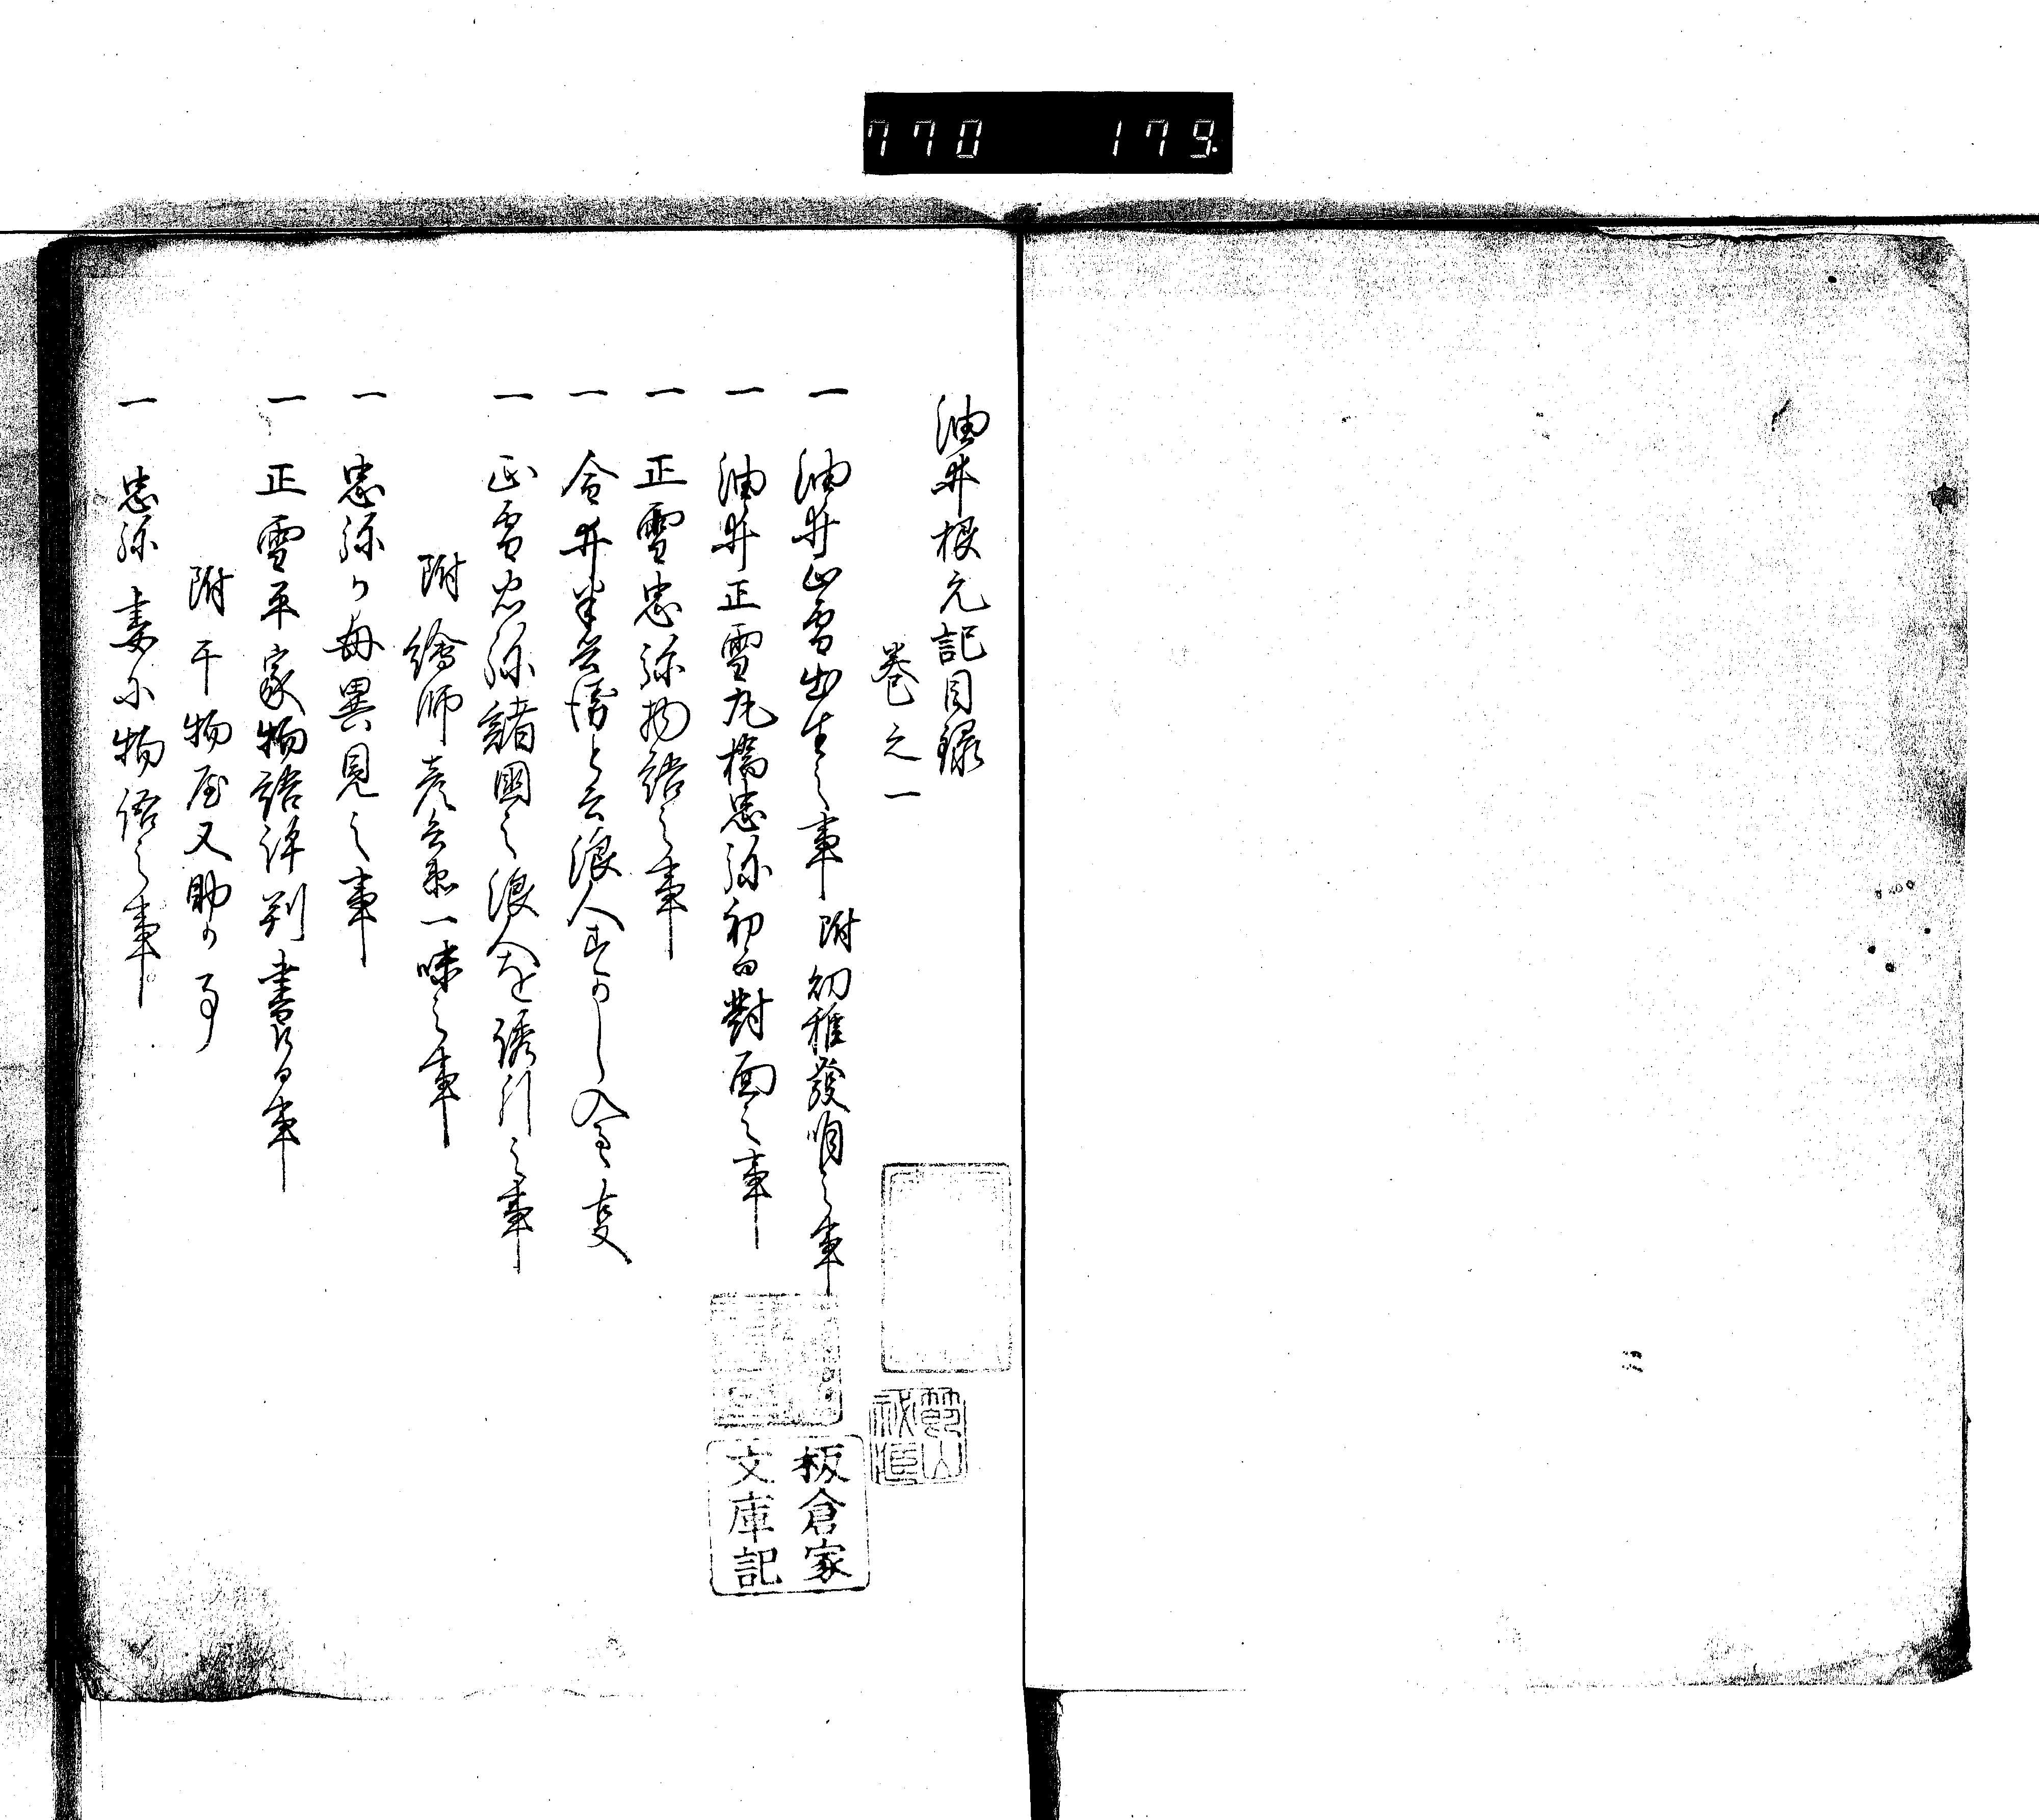 770 179
油井根元記目録
巻之一
一 油井正雪出生之事 附 幼稚發明之事
一 油井正雪丸橋忠弥初而對面之事
一 正雪忠弥物語之事
一 金井半兵衛と云浪人をかし入る事
一 正雪忠弥諸國之浪人を誘引之事
附 繪師彦兵衛一味之事
一 忠弥か母異見之事
一 正雪平家物語評判書の事
附 干物屋又助か事
一 忠弥妻に物語之事
板倉家
文庫記